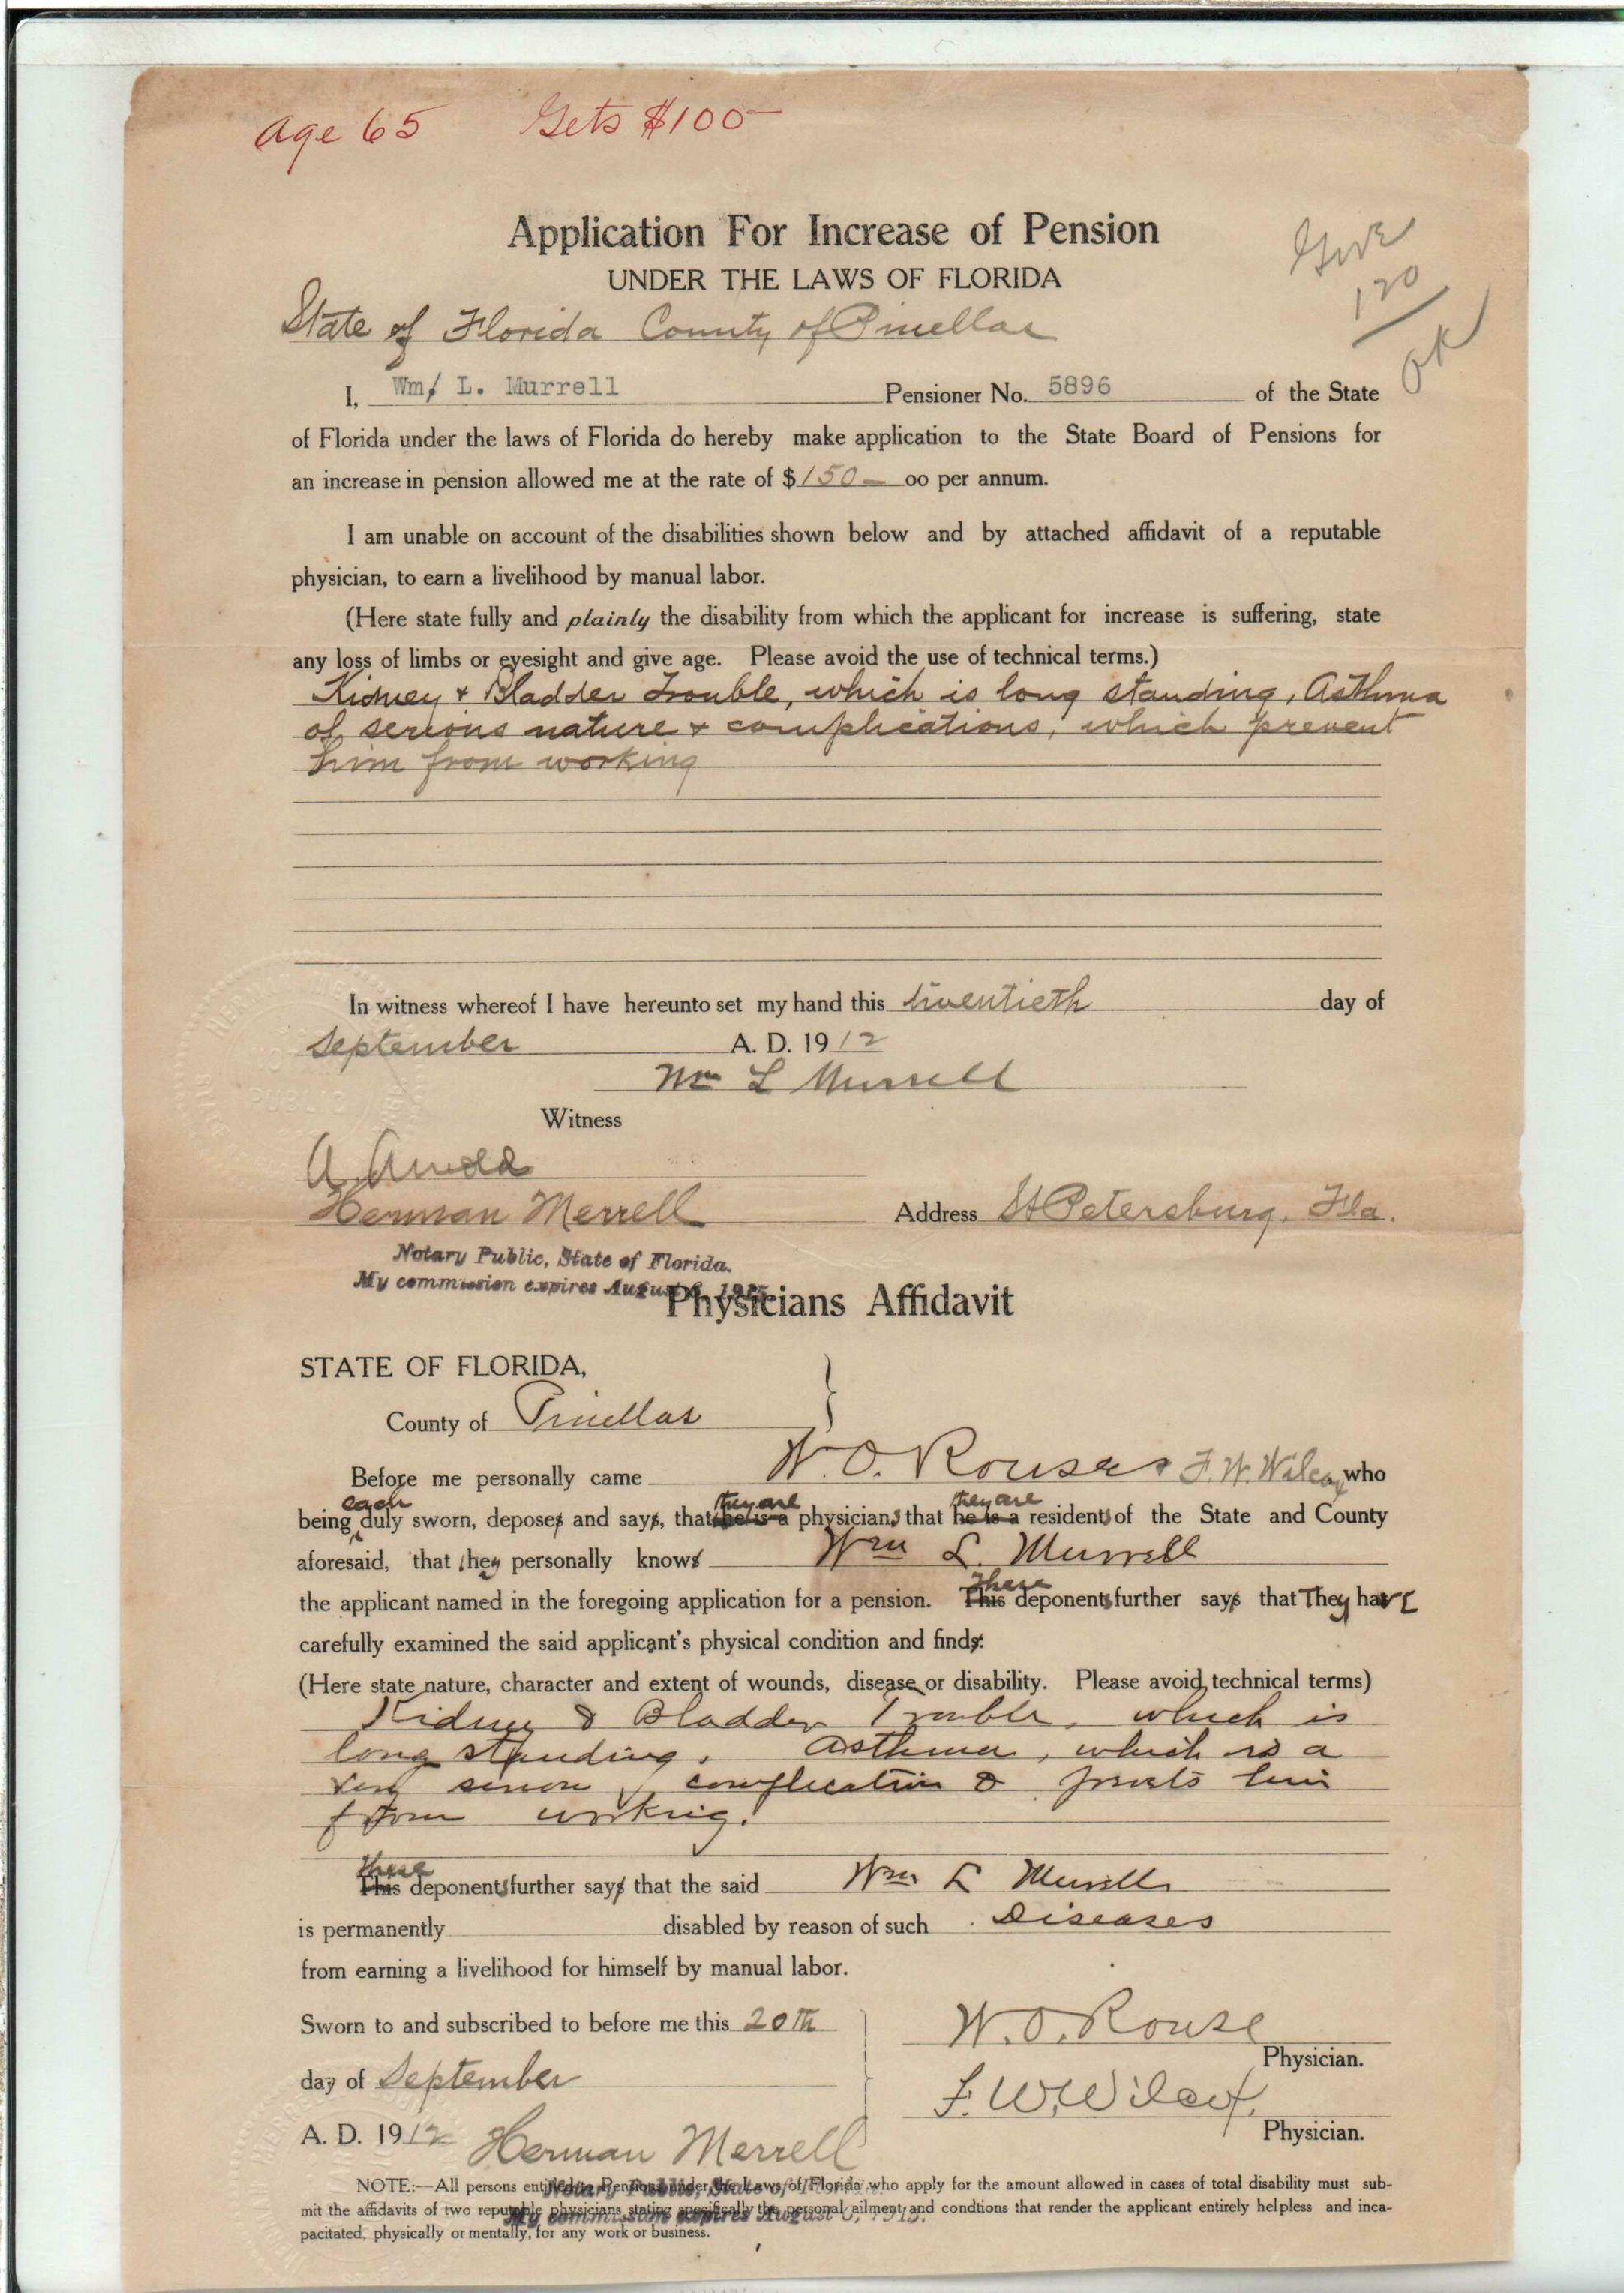 Age 65 Gets $100-
Application For Increase of Pension
UNDER THE LAWS OF FLORIDA
Give
120
OK
State of Florida County of Pinellas
I, Wm. L. Murrell Pensioner No. 5896 of the State
of Florida under the laws of Florida do hereby make application to the State Board of Pensions for
an increase in pension allowed me at the rate of $ 150 – oo per annum.
I am unable on account of the disabilities shown below and by attached affidavit of a reputable
physician, to earn a livelihood by manual labor.
(Here state fully and plainly the disability from which the applicant for increase is suffering, state
any loss of limbs or eyesight and give age. Please avoid the use of technical terms.)
Kidney & Bladder Trouble, which is long standing, Asthma
of serious nature & complications, which prevent
him from working
In witness whereof I have hereunto set my hand this twentieth day of
September A. D. 1912
Wm L Murrell
Witness
A.
Herman Merrell Address St Petersburg, Fla.
Notary Public, State of Florida.
My commission expires August
Physicians Affidavit
STATE OF FLORIDA,
County of Pinellas
Before me personally came W. O. Rouse & F. W. Wilcox who
each they are they are
being duly sworn, deposes and says, that he is a physicians that he is a residents of the State and County
aforesaid, that they personally knows Wm L. Murrell
These
the applicant named in the foregoing application for a pension. This deponents further says that They have
carefully examined the said applicant's physical condition and finds:
(Here state nature, character and extent of wounds, disease or disability. Please avoid technical terms)
Kidney & Bladder Trouble, which is
long standing. Asthma, which is a
very serious complication & him
from working.
These
This deponents further says that the said Wm L Murrell
is permanently disabled by reason of such Diseases
from earning a livelihood for himself by manual labor.
Sworn to and subscribed to before me this 20th
W. O. Rouse
Physician.
day of September
F. W. Wilcox.
Physician.
A. D. 1912 Herman Merrell
NOTE:—All persons entitled to Pensions under the Laws of Florida who apply for the amount allowed in cases of total disability must sub-
Notary Public, State of Florida.
mit the affidavits of two reputable physicians stating specifically the personal ailment and condtions that render the applicant entirely helpless and inca-
My commission expires August 6, 1915.
pacitated, physically or mentally, for any work or business.